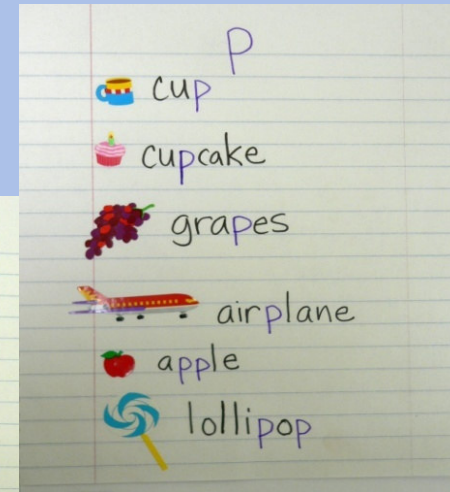 p
cup
cupcake
grapes
airplane
apple
lollipop